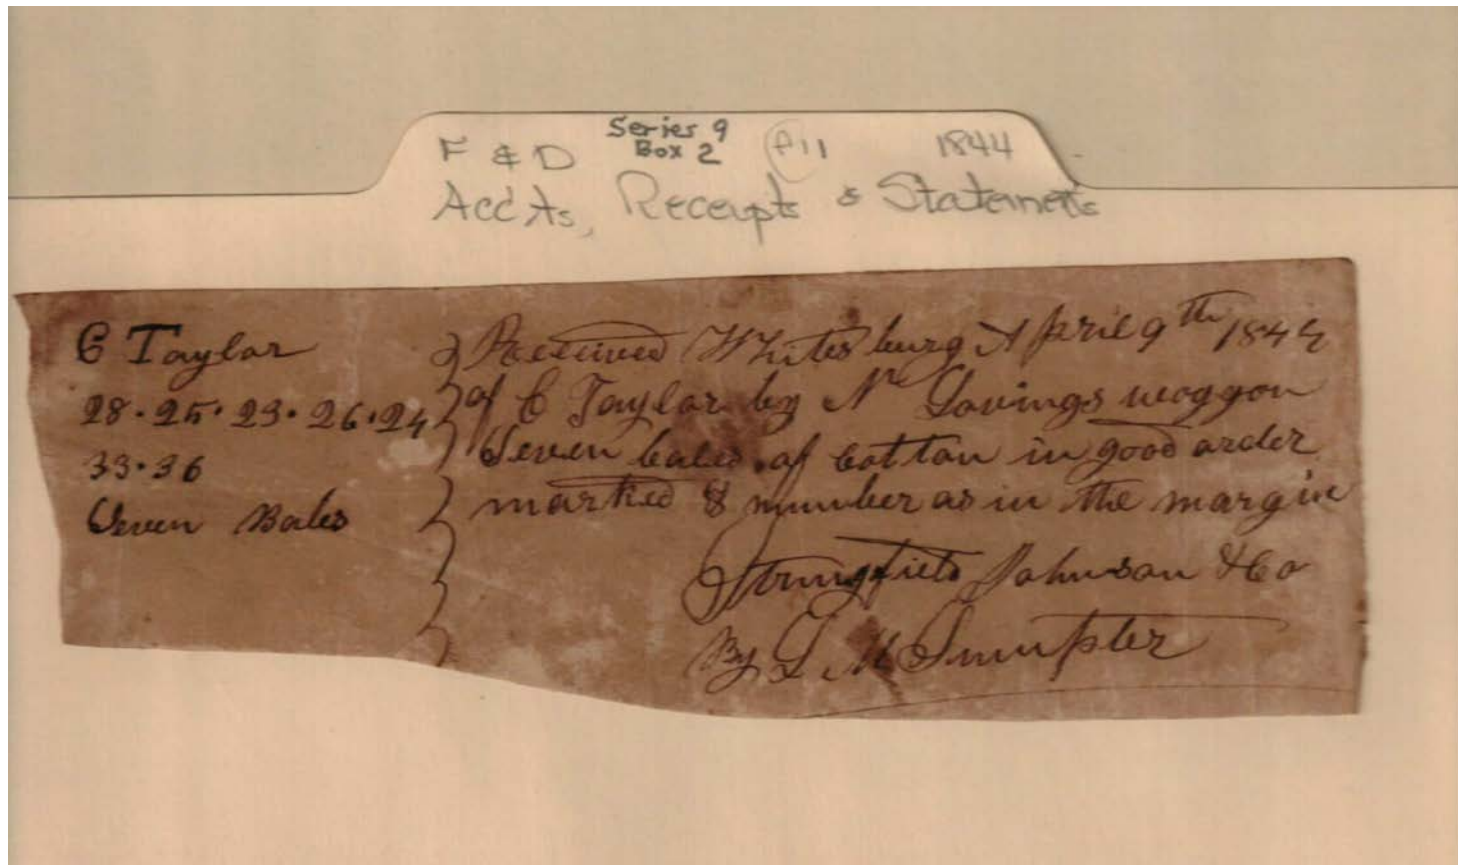 Series 9
F & D Box 2 F11 1844
Acc'ts, Receipts & Statements
C Taylor
28 · 25 · 23 · 26 · 24
33 · 36
Seven Bales
Received Whitesburg April 9th 1844
of C Taylor by N Lovings waggon
Seven bales of Cotton in good order
marked & number as in the margin
Stringfield Johnson & Co
By L M Sumpter